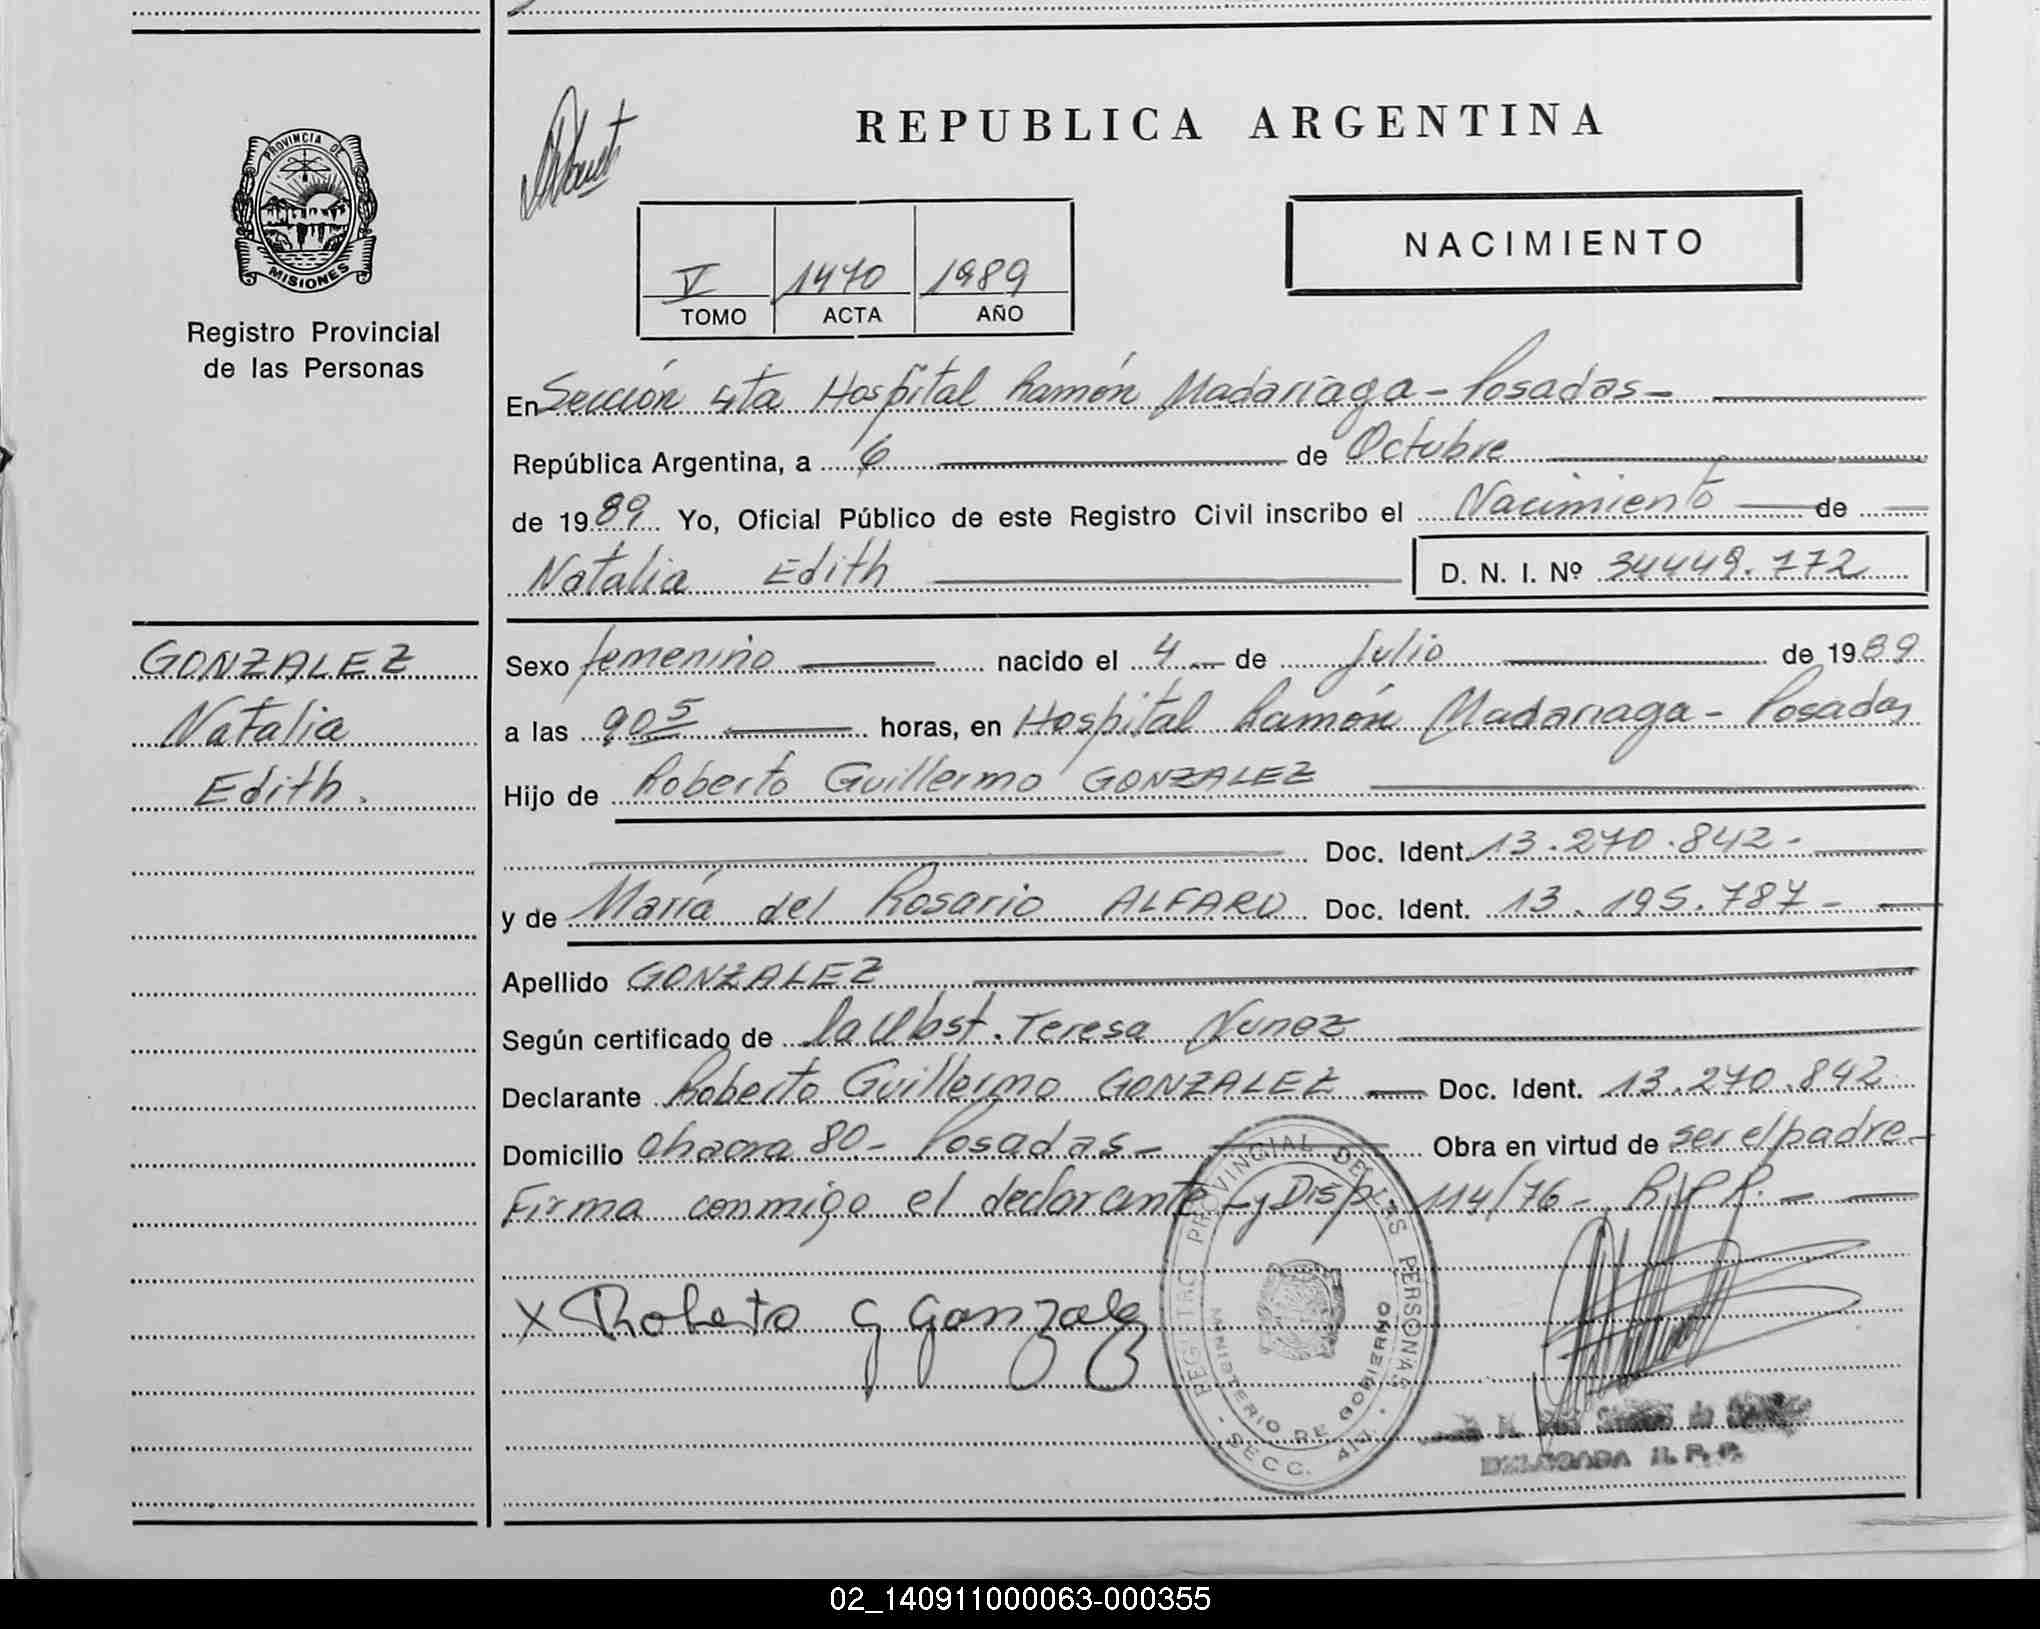 PROVINCIA DE
MISIONES
Registro Provincial
de las Personas
REPUBLICA ARGENTINA
NACIMIENTO
V 1470 1989
TOMO ACTA AÑO
En Sección 4ta Hospital Ramón Madariaga - Posadas -
República Argentina, a 6 de Octubre
de 1989 Yo, Oficial Público de este Registro Civil inscribo el Nacimiento de
Natalia Edith D. N. I. Nº 34449.772
GONZALEZ
Natalia
Edith.
Sexo femenino nacido el 4 de Julio de 1989
a las 905 horas, en Hospital Ramón Madariaga - Posadas
Hijo de Roberto Guillermo GONZALEZ
Doc. Ident. 13.270.842-
y de María del Rosario ALFARO Doc. Ident. 13.195.787-
Apellido GONZALEZ
Según certificado de la Obst. Teresa Nunez
Declarante Roberto Guillermo GONZALEZ Doc. Ident. 13.270.842
Domicilio Chacra 80 - Posadas - Obra en virtud de ser el padre -
Firma conmigo el declarante Ley Disp. 114/76 - R.P.P. -
X Roberto G Gonzalez
REGISTRO PROVINCIAL DE LAS PERSONAS
MINISTERIO DE GOBIERNO
SECC. 4ta.
DELEGADA R. P. P.
02_140911000063-000355